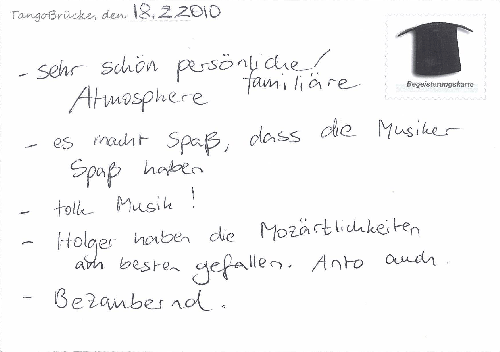 TangoBrücke, den 18.2.2010
Begeisterungskarte
- sehr schön persönliche/
familiäre
Atmosphere
- es macht Spaß, dass die Musiker
Spaß haben
- tolle Musik!
- Holger haben die Mozärtlichkeiten
am besten gefallen. Anto auch.
- Bezaubernd.